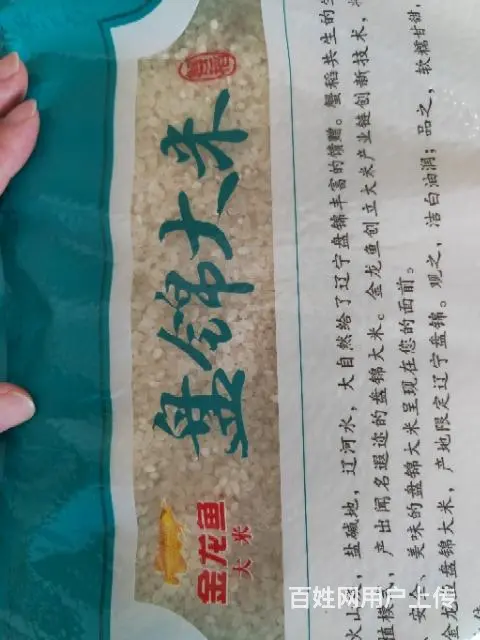 金龙鱼
大米
盘锦大米
蟹稻
火山灰,盐碱地,辽河水,大自然给了辽宁盘锦丰富的馈赠。蟹稻共生的
植模式,产出闻名遐迩的盘锦大米。金龙鱼创立大米产业链创新技术,
安全、美味的盘锦大米呈现在您的面前。
金龙鱼盘锦大米,产地限定辽宁盘锦。观之,洁白油润;品之,软糯甘甜,
百姓网用户上传